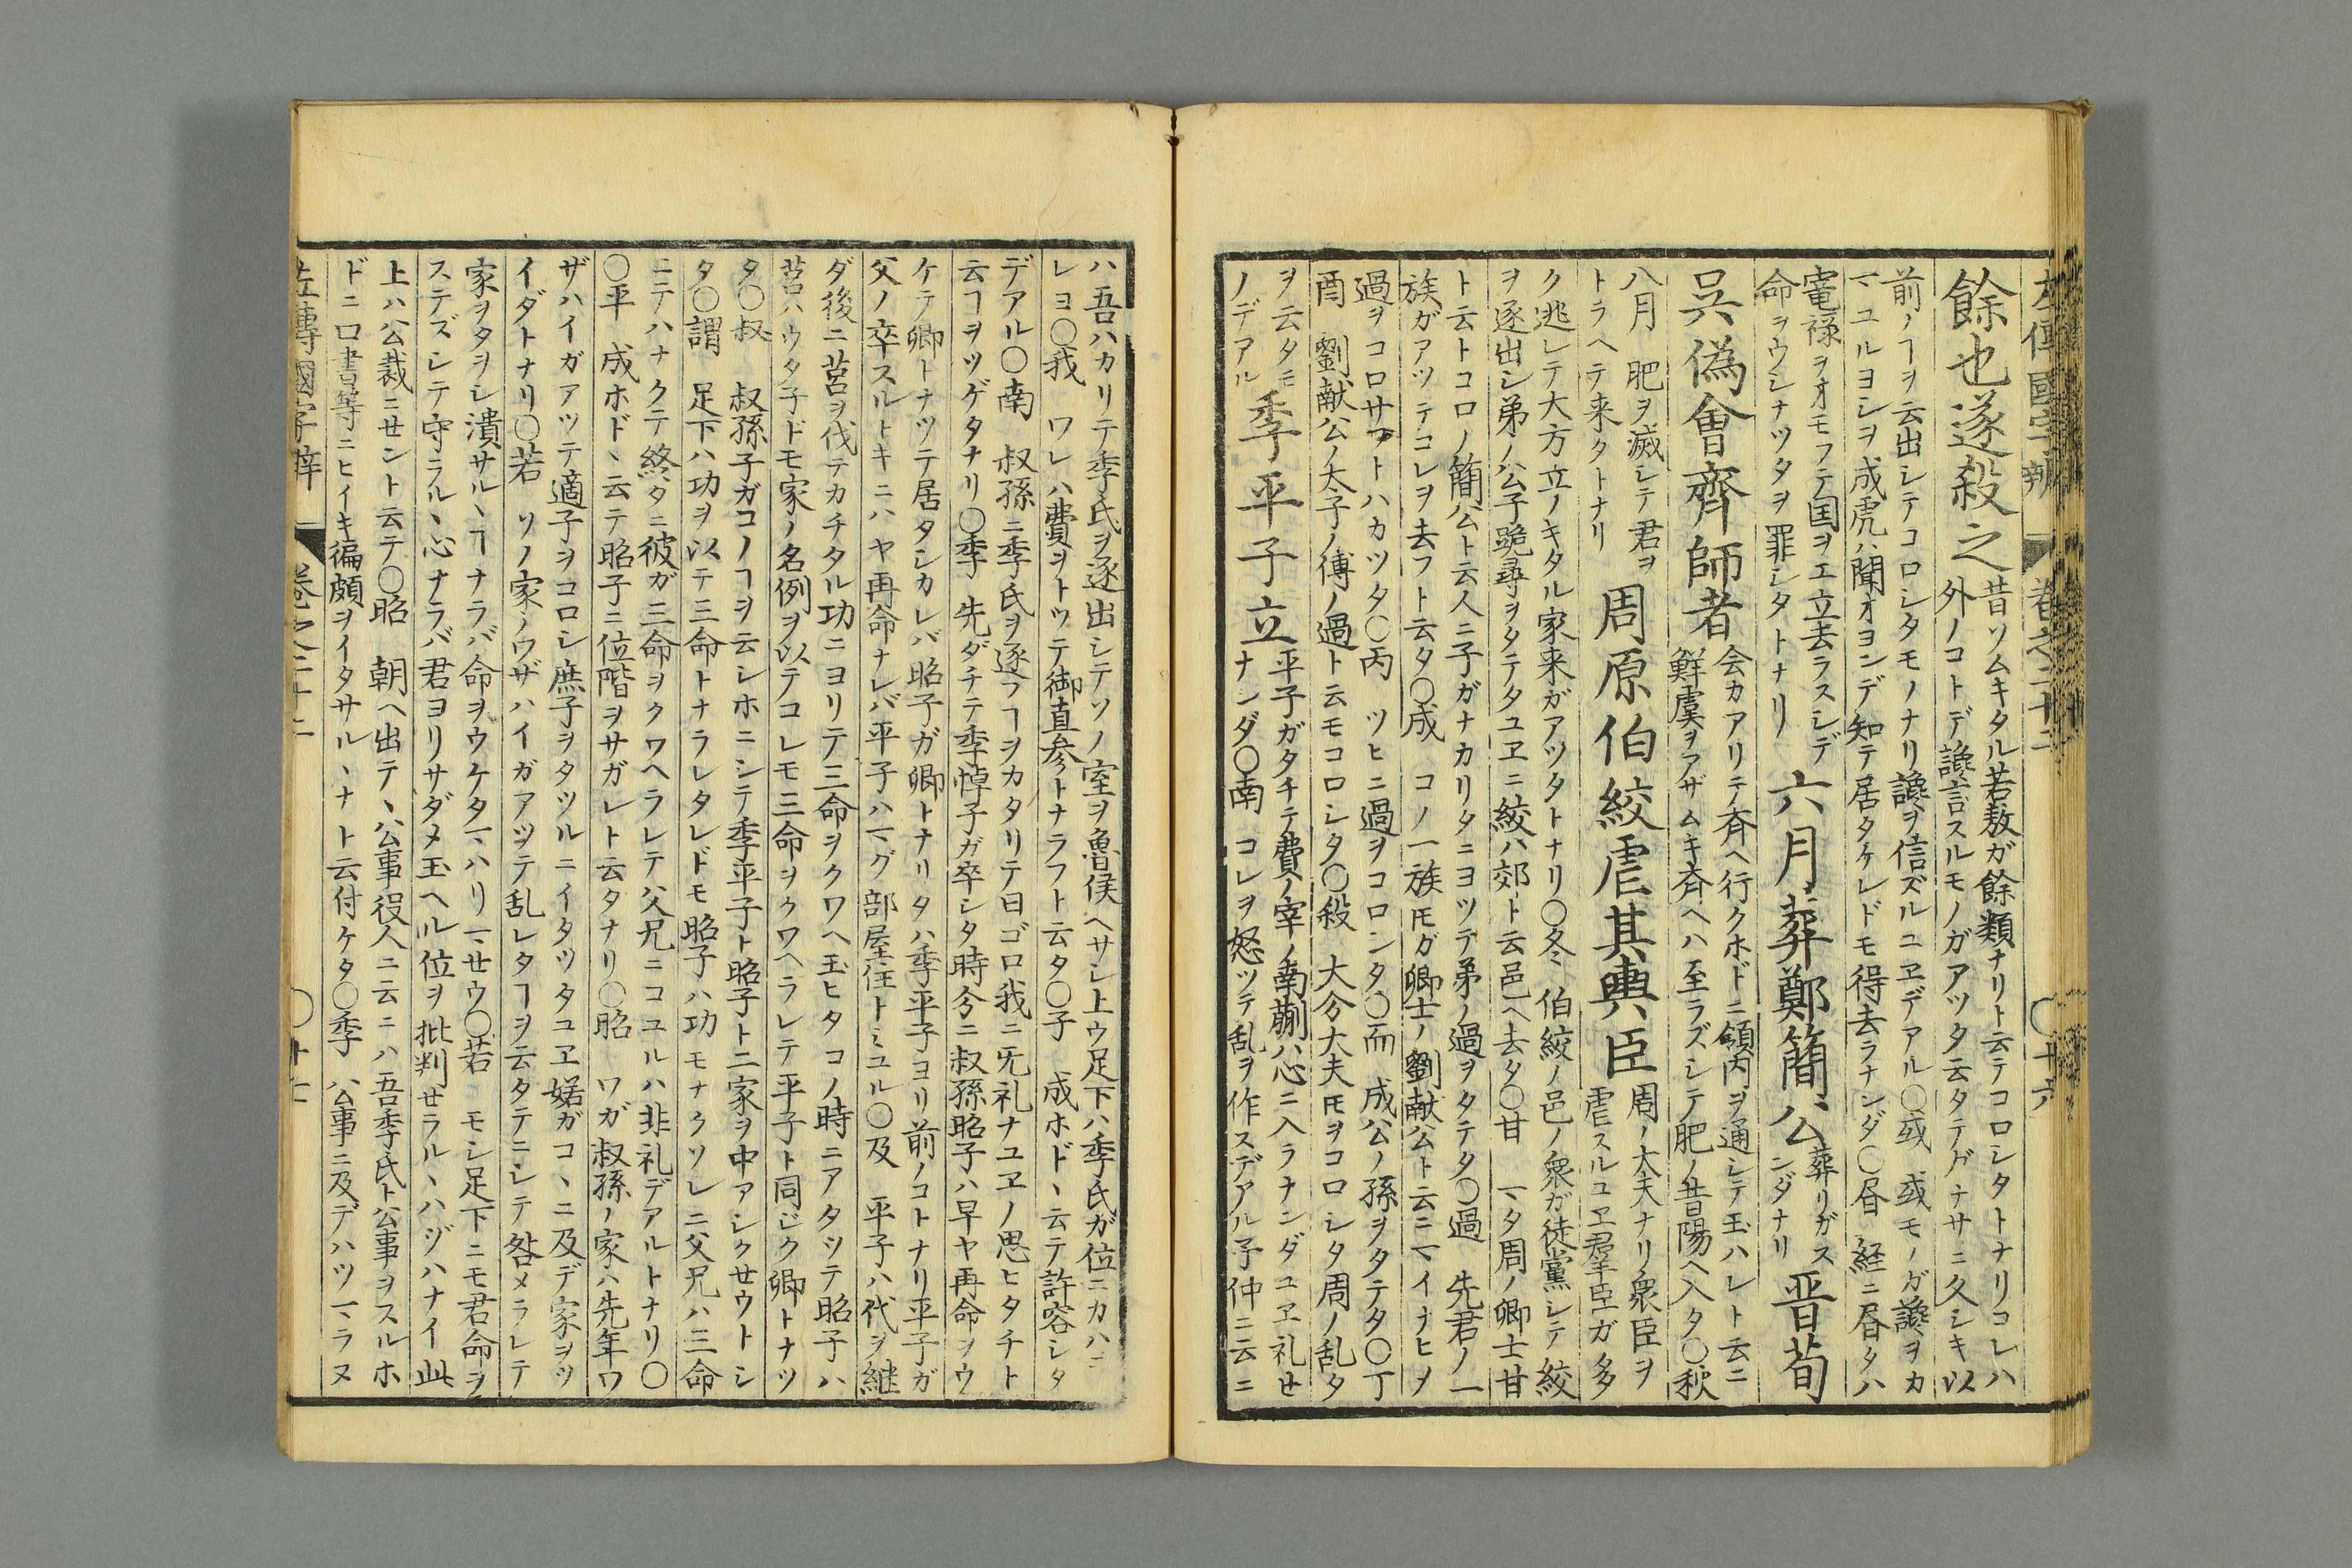 左傳國字辨 巻之二十二 〇十六
餘也遂殺之
昔ソムキタル若敖ガ餘類ナリト云テコロシタトナリコレハ
外ノコトデ讒言スルモノガアツタ云タテグナサニ久シキ以
前ノヿヲ云出シテコロシタモノナリ讒ヲ信ズルユヱデアル〇或 或モノガ讒ヲカ
マユルヨシヲ成虎ハ聞オヨンデ知テ居タケレドモ得去ラナンダ〇昏 経ニ昏タハ
寵禄ヲオモフテ国ヲエ立去ラスシデ
命ヲウシナツタヲ罪シタトナリ
六月葬鄭簡公
葬リガス
ンダナリ
晋荀
呉偽會齊師者
会カアリテ斉ヘ行クホドニ領内ヲ通シテ玉ハレト云ニ
鮮虞ヲアザムキ斉ヘハ至ラズシテ肥ノ昔陽ヘ入タ〇秋
八月 肥ヲ滅シテ君ヲ
トラヘテ来タトナリ
周原伯絞虐其輿臣
周ノ大夫ナリ衆臣ヲ
虐スルユヱ羣臣ガ多
ク逃レテ大方立ノキタル家来ガアツタトナリ〇冬 伯絞ノ邑ノ衆ガ徒黨シテ絞
ヲ逐出シ弟ノ公子跪尋ヲタテタユヱニ絞ハ郊ト云邑ヘ去タ〇甘 マタ周ノ卿士甘
ト云トコロノ簡公ト云人ニ子ガナカリタニヨツテ弟ノ過ヲタテタ〇過 先君ノ一
族ガアツテコレヲ去フト云タ〇成 コノ一族𪜈ガ卿士ノ劉献公ト云ニマイナヒヲ
過ヲコロサフトハカツタ〇丙 ツヒニ過ヲコロシタ〇而 成公ノ孫ヲタテタ〇丁
酉 劉献公ノ太子ノ傅ノ過ト云モコロシタ〇殺 大分大夫𪜈ヲコロシタ周ノ乱タ
ヲ云タモ
ノデアル
季平子立
平子ガタチテ費ノ宰ノ南蒯ハ心ニ入ラナンダユヱ礼セ
ナンダ〇南 コレヲ怒ツテ乱ヲ作スデアル子仲ニ云ニ
ハ吾ハカリテ季氏ヲ逐出シテソノ室ヲ魯侯ヘサレ上ウ足下ハ季氏ガ位ニカハ
レヨ〇我 ワレハ費ヲトツテ御直参トナラフト云タ〇子 成ホドヽ云テ許容シタ
デアル〇南 叔孫ニ季氏ヲ逐フヿヲカタリテ曰ゴロ我ニ旡礼ナユヱノ思ヒタチト
云ヿヲツゲタナリ〇季 先ダチテ季悼子ガ卒シタ時今ニ叔孫昭子ハ早ヤ再命ヲウ
ケテ卿トナツテ居タシカレバ昭子ガ卿トナリタハ季平子ヨリ前ノコトナリ平子ガ
父ノ卒スルトキニハヤ再命ナレバ平子ハマグ部屋住トミユル〇及 平子ハ代ヲ継
ダ後ニ莒ヲ伐テカチタル功ニヨリテ三命ヲクワヘ玉ヒタコノ時ニアタツテ昭子ハ
莒ハウタ子ドモ家ノ名例ヲ以テコレモ三命ヲクワヘラレテ平子ト同ジク卿トナツ
タ〇叔 叔孫子ガコノヿヲ云シホニシテ季平子ト昭子ト二家ヲ中アシクセウトシ
タ〇謂 足下ハ功ヲ以テ三命トナラレタレドモ昭子ハ功モナクソレニ父兄ハ三命
ニテハナクテ終タニ彼ガ三命ヲクワヘラレテ父兄ニコユルハ非礼デアルトナリ〇
〇平 成ホドヽ云テ昭子ニ位階ヲサガレト云タナリ〇昭 ワガ叔孫ノ家ハ先年ワ
ザハイガアツテ適子ヲコロシ庶子ヲタツルニイタツタユヱ婼ガコヽニ及デ家ヲツ
イダトナリ〇若 ソノ家ノワザハイガアツテ乱レタヿヲ云タテニシテ咎メラレテ
家ヲタヲシ潰サルヽヿナラバ命ヲウケタマハリマセウ〇若 モシ足下ニモ君命ヲ
ステズシテ守ラルヽ心ナラバ君ヨリサダメ玉ヘル位ヲ批判セラルヽハヅハナイ此
上ハ公裁ニセント云テ〇昭 朝ヘ出テヽ公事役人ニ云ニハ吾季氏ト公事ヲスルホ
ドニ口書等ニヒイキ偏頗ヲイタサルヽナト云付ケタ〇季 公事ニ及デハツマラヌ
左傳國字辨 巻之二十二 〇十七